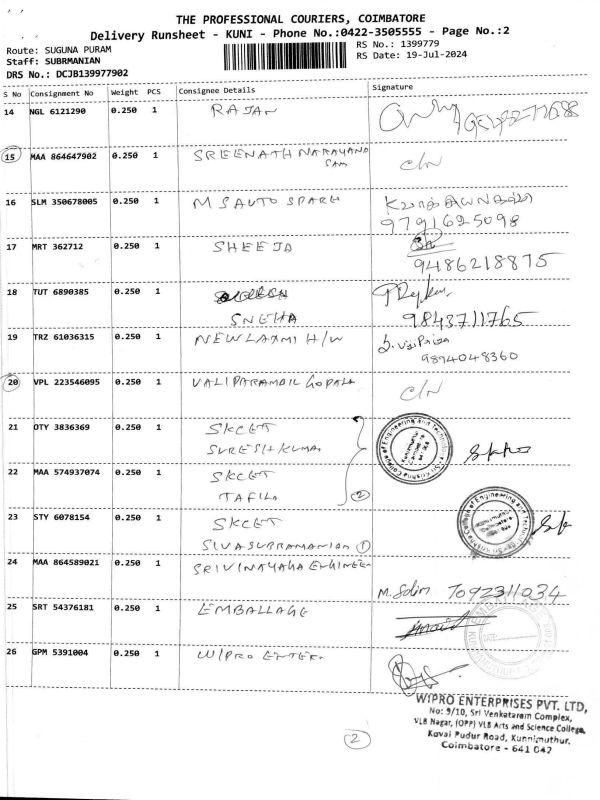 THE PROFESSIONAL COURIERS, COIMBATORE
Delivery Runsheet - KUNI - Phone No.:0422-3505555 - Page No.:2
Route: SUGUNA PURAM
RS No.: 1399779
Staff: SUBRMANIAN
RS Date: 19-Jul-2024
DRS No.: DCJB139977902
S No Consignment No Weight PCS Consignee Details Signature
14 NGL 6121290 0.250 1 RAJAN
15 MAA 864647902 0.250 1 SREENATH NARAYANA
SAM C/N
16 SLM 350678005 0.250 1 M S AUTO SPARE
9791625098
17 MRT 362712 0.250 1 SHEEJA
9486218875
18 TUT 6890385 0.250 1
SNEHA 9843711765
19 TRZ 61036315 0.250 1 NEW LAXMI H/W
9894048360
20 VPL 223546095 0.250 1 VALIPARAMBIL GOPALA C/N
21 OTY 3836369 0.250 1 SKCET
SURESH KUMAR
22 MAA 574937074 0.250 1 SKCET
2
23 STY 6078154 0.250 1 SKCET
SIVASUBRAMANIAN 1
24 MAA 864589021 0.250 1 SRI VINAYAGA ENGINEE
7092311034
25 SRT 54376181 0.250 1 EMBALLAGE
26 GPM 5391004 0.250 1 WIPRO ENTER.
WIPRO ENTERPRISES PVT. LTD,
No: 9/10, Sri Venkataram Complex,
VLB Nagar, (OPP) VLB Arts and Science College,
Kovai Pudur Road, Kunnimuthur,
Coimbatore - 641 042
2